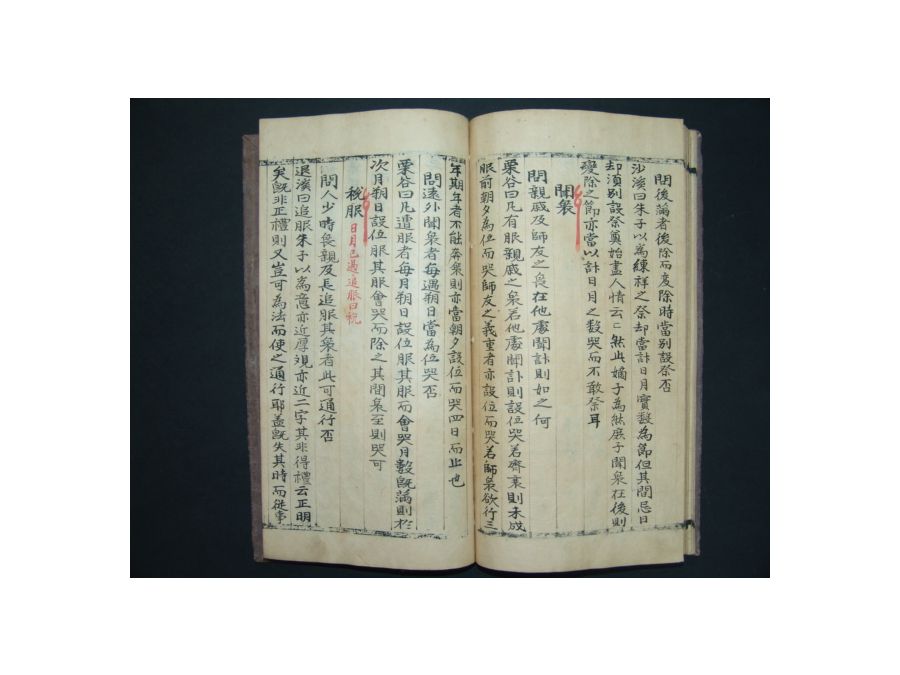 問後滿者後除而變除時當別設祭否
沙溪曰朱子以為練祥之祭却當計日月實數為節但其間忌日
却須別設祭奠始盡人情云云然此嫡子為然庶子聞喪在後則
變除之節亦當以計日月之數哭而不敢祭耳
聞喪
問親戚及師友之喪在他處聞訃則如之何
栗谷曰凡有服親戚之喪若他處聞訃則設位哭若齊衰則未成
服前朝夕為位而哭師友之義重者亦設位而哭若師喪欲行三
年期年者不能奔喪則亦當朝夕設位而哭四日而止也
問遠外聞喪者每遇朔日當為位哭否
栗谷曰凡遭服者每月朔日設位服其服而會哭月數旣滿則於
次月朔日設位服其服會哭而除之其間喪至則哭可
稅服 日月已過追服曰稅
問人少時喪親及長追服其喪者此可通行否
退溪曰追服朱子以為意亦近厚觀亦近二字其非得禮云正明
矣旣非正禮則又豈可為法而使之通行耶盖旣失其時而從事